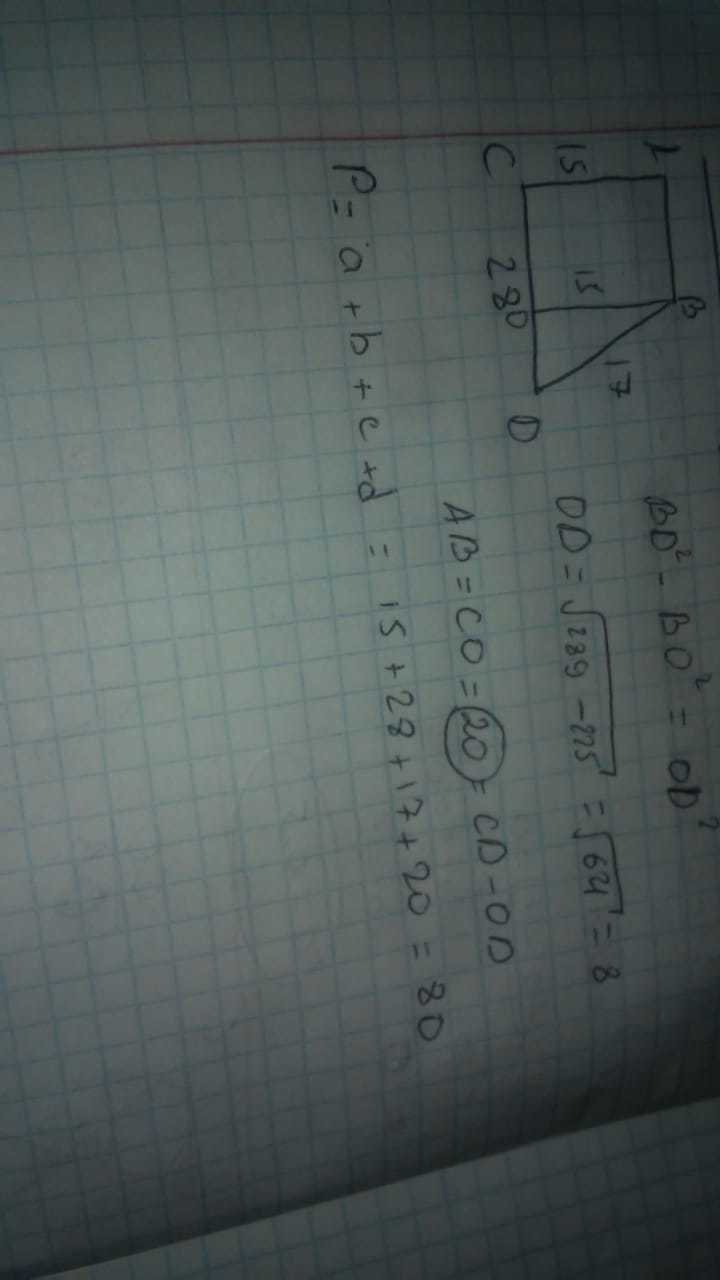 A B
15 15 17
C 28 O D
BD² - BO² = OD²
OD = √289 - 225 = √64 = 8
AB = CO = 20 = CD - OD
P = a + b + c + d = 15 + 28 + 17 + 20 = 80